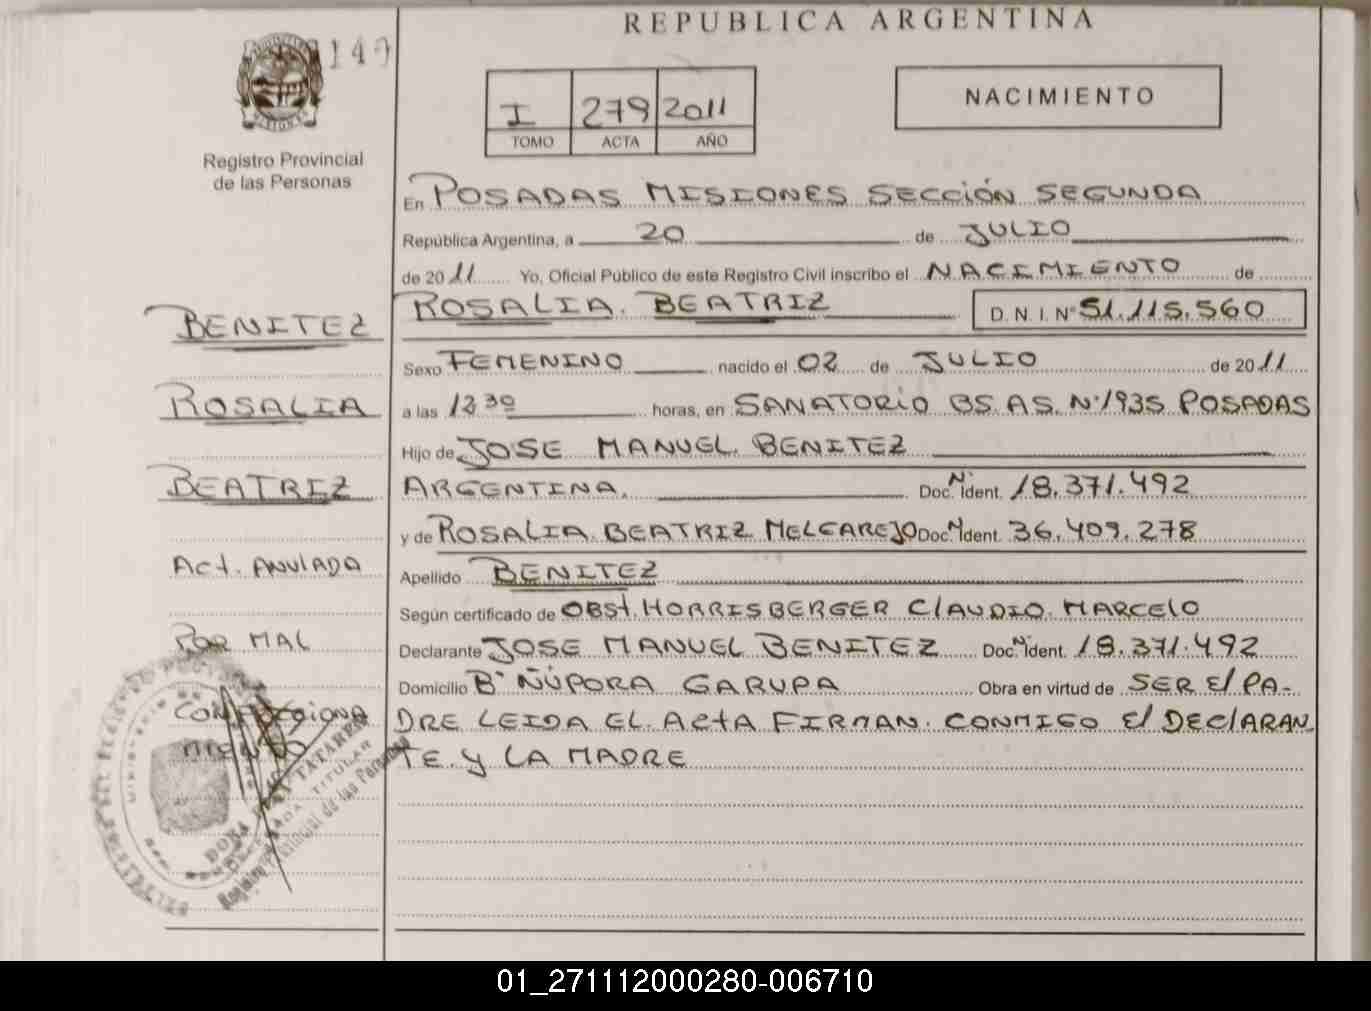 REPUBLICA ARGENTINA
149
I 279 2011
TOMO ACTA AÑO
NACIMIENTO
Registro Provincial
de las Personas
En POSADAS MISIONES SECCIÓN SEGUNDA
República Argentina, a 20 de JULIO
de 2011 Yo, Oficial Público de este Registro Civil inscribo el NACIMIENTO de
ROSALIA. BEATRIZ D. N. I. Nº 51.115.560
BENITEZ
Sexo FEMENINO nacido el 02 de JULIO de 2011
ROSALIA
a las 12 30 horas, en SANATORIO BS AS. Nº1935 POSADAS
Hijo de JOSE MANUEL. BENITEZ
BEATRIZ
ARGENTINA. Doc. Nº Ident. 18.371.492
y de ROSALIA. BEATRIZ MELGAREJO Doc. Nº Ident. 36.409.278
Act. ANULADA
Apellido BENITEZ
Según certificado de OBST. HORRISBERGER CLAUDIO. MARCELO
POR MAL
Declarante JOSE MANUEL BENITEZ Doc. Nº Ident. 18.371.492
Domicilio Bº ÑUPORA GARUPA Obra en virtud de SER El PA-
CONFECCIONA
DRE LEIDA EL. ActA FIRMAN. CONMIGO El DEClARAN
MIENTO
TE. y LA MADRE
TITULAR
Registro Provincial de las Personas
01_271112000280-006710